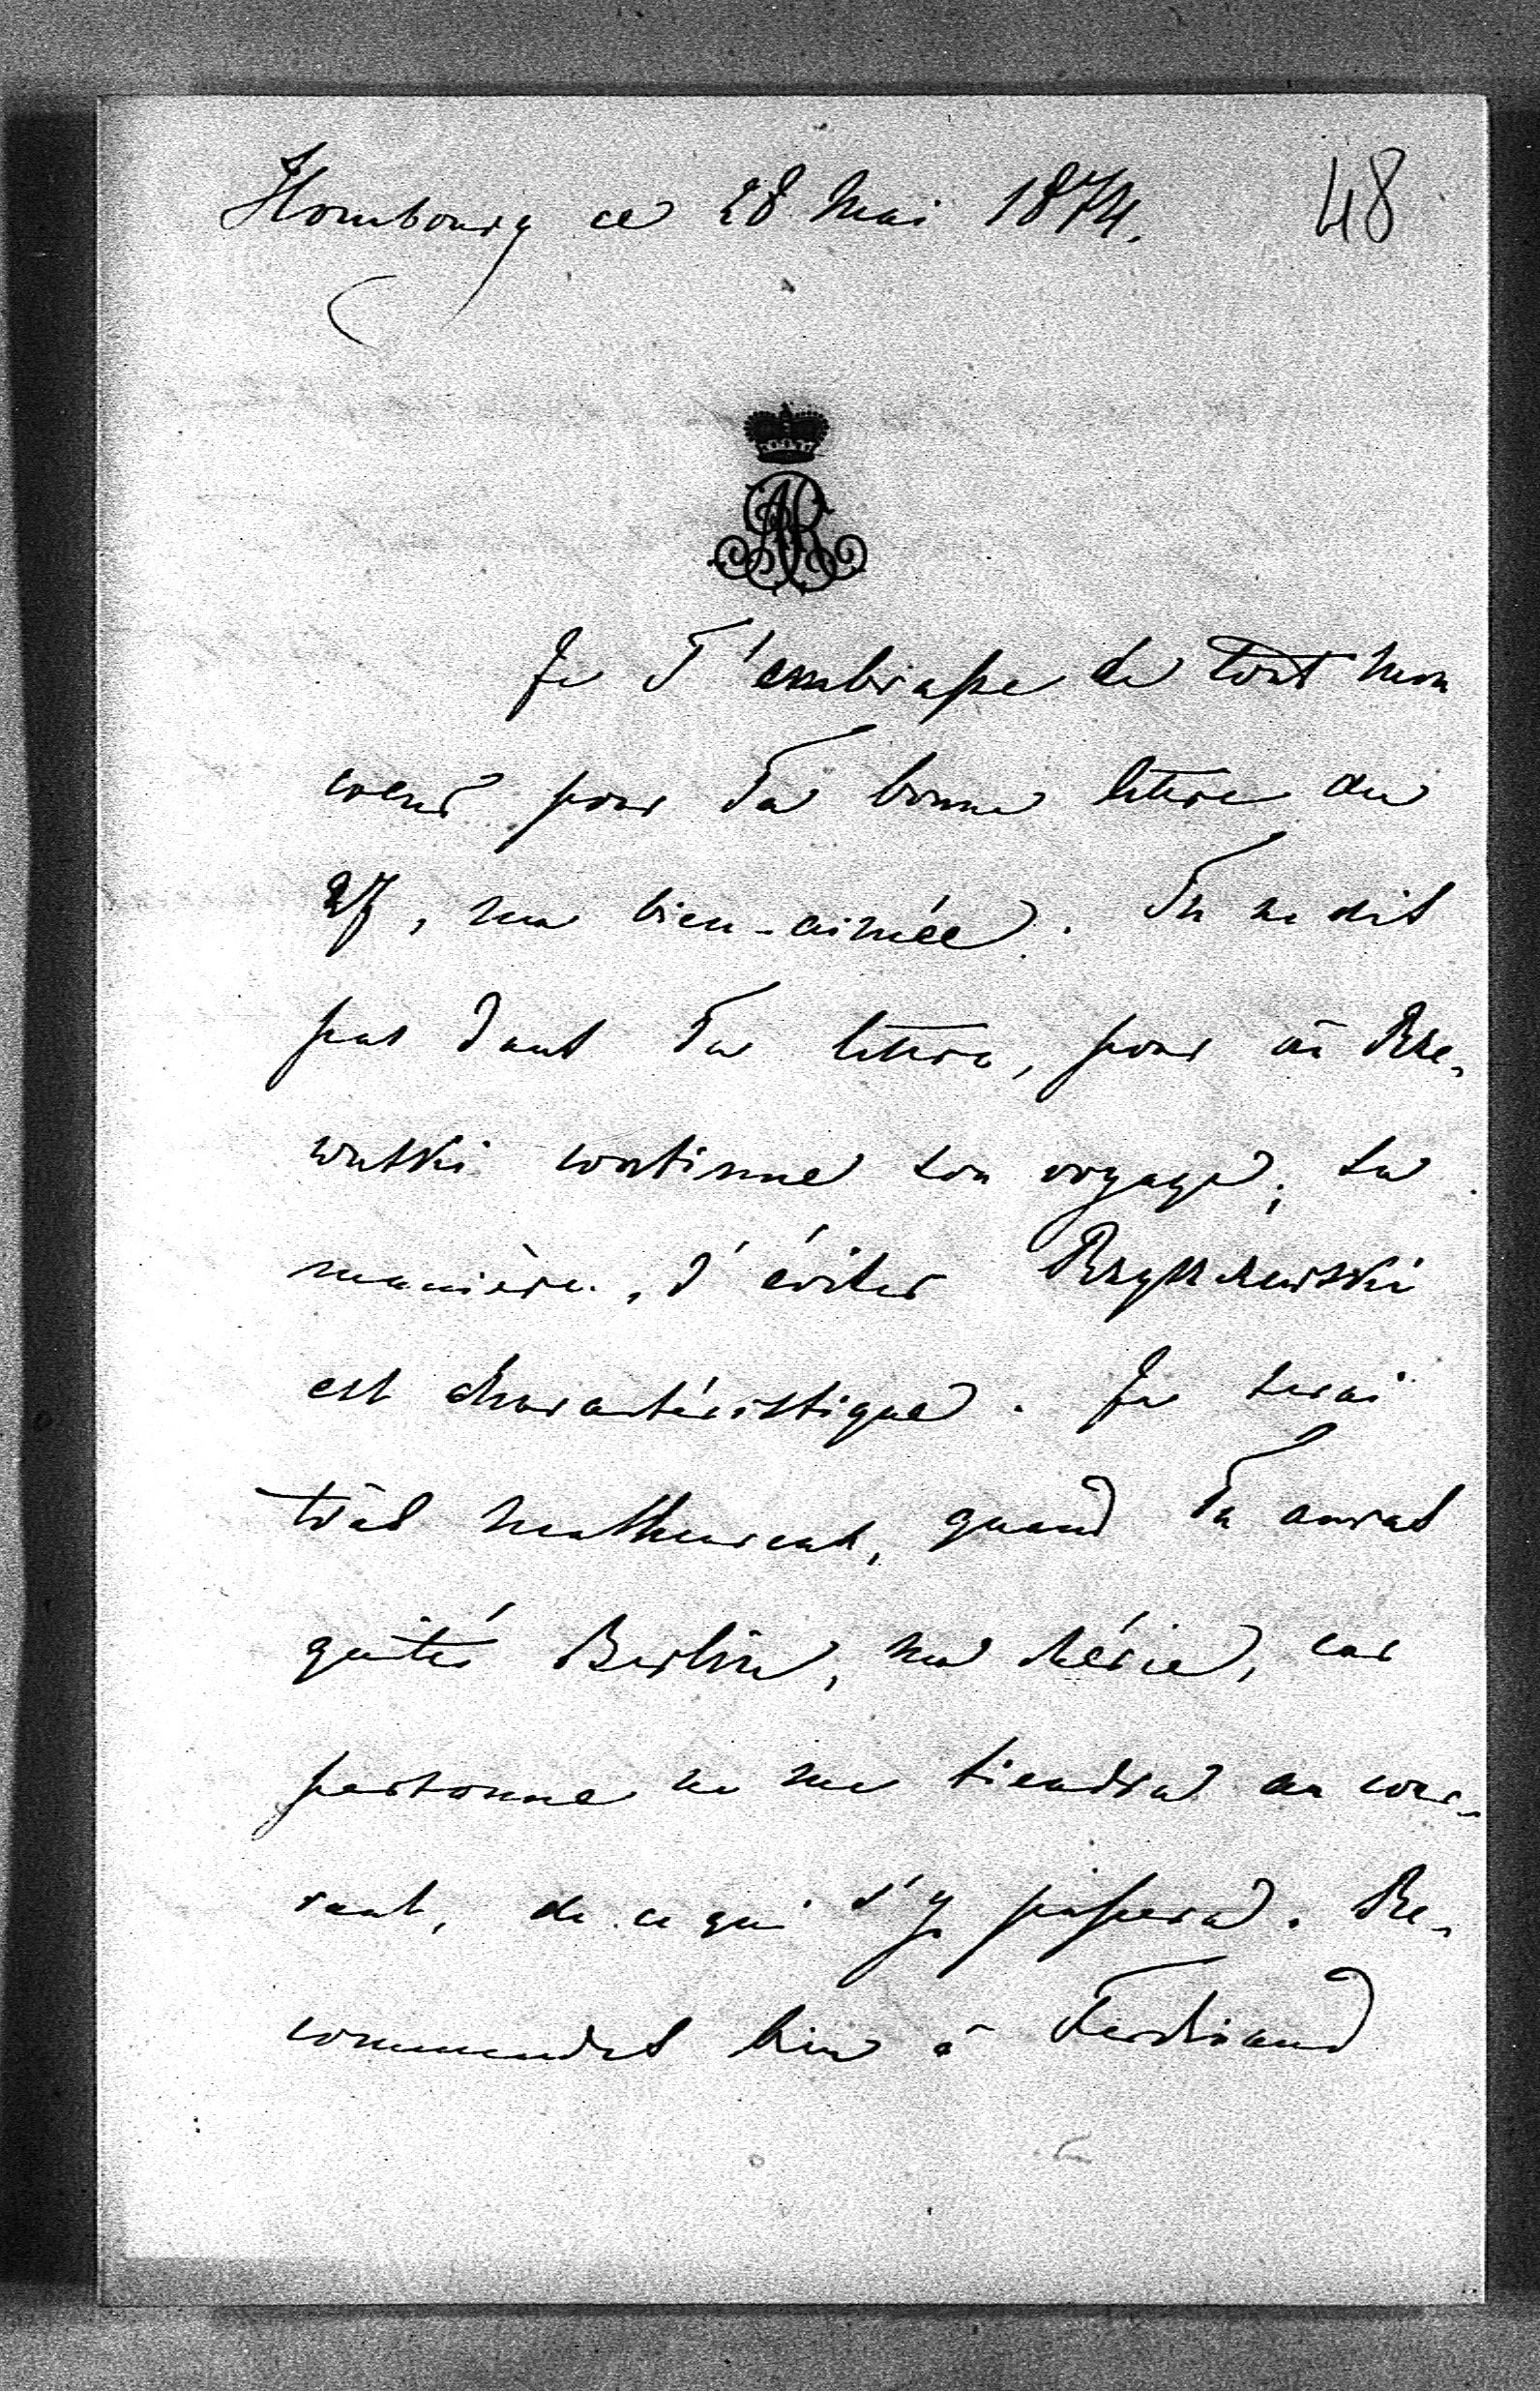 Hombourg ce 28 Mai 1874. 48
AR
Je T'embrasse de tout mon
coeur pour Ta bonne lettre du
27, ma bien-aimée. Tu ne dit
pas dans Ta lettre, pour où Rze-
wuski continue son voyage; sa
manière, d'éviter Rzyszczewski
est charactéristique. Je serai
très malheureux, quand Tu auras
quitté Berlin, ma chérie, car
personne ne me tiendra au cou-
rant, de ce qui s'y passera. Re-
commendes bien à Ferdinand